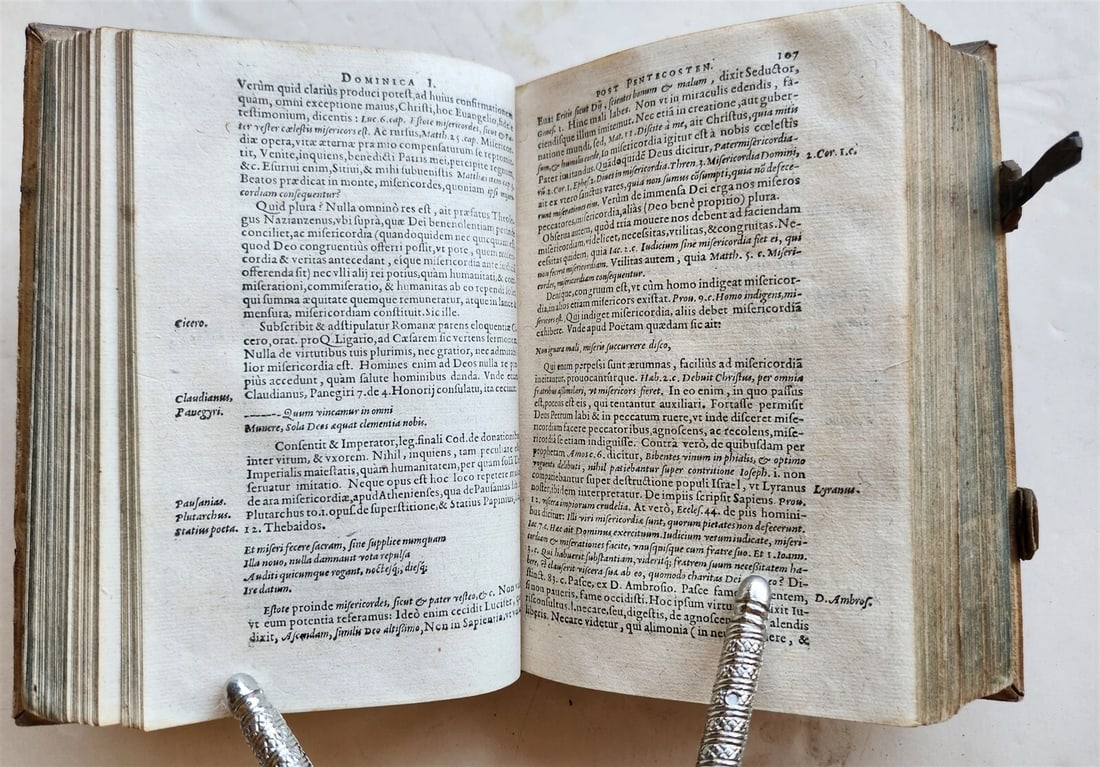 DOMINICA I.
Verùm quid clariùs produci potest, ad huius confirmationem
quàm, omni exceptione maius, Christi, hoc Euangelio, fidele
testimonium, dicentis: Luc. 6. cap. Estote misericordes, sicut & Pa-
ter vester cælestis misericors est. Ac rursus, Matth. 25. cap.
diæ opera, vitæ æternæ præmio compensaturum se
tit, Venite, inquiens, benedicti Patris mei, percipite regnum,
&c. Esuriui enim, Sitiui, & mihi subuenistis. Matthæi item cap. 5.
Beatos prædicat in monte, misericordes, quoniam ipsi
cordiam consequentur?
Quid plura? Nulla omninò res est, ait præfatus Theolo-
gus Nazianzenus, vbi suprà, quæ Dei beneuolentiam
conciliet, ac misericordia (quandoquidem nec quicquam
quod Deo congruentiùs offerri possit, vt pote, quem
cordia & veritas antecedant, eique misericordia ante
offerenda sit) nec vlli alij rei potius, quàm humanitati, &
miserationi, commiseratio, & humanitas ab eo rependi
qui summa æquitate quemque remuneratur, atque in lance
mensura, misericordiam constituit. Sic ille.
Cicero.
Subscribit & adstipulatur Romanæ parens eloquentiæ Ci-
cero, orat. pro Q. Ligario, ad Cæsarem sic vertens
Nulla de virtutibus tuis plurimis, nec gratior, nec
lior misericordia est. Homines enim ad Deos nulla re
piùs accedunt, quàm salute hominibus danda. Vnde
Claudianus, Panegyri.
Claudianus, Panegiri 7. de 4. Honorij consulatu, ita
Quum vincamur in omni
Munere, Sola Deos æquat clementia nobis.
Consentit & Imperator, leg. finali Cod. de donationib.
inter virum, & vxorem. Nihil, inquiens, tam peculiare
Imperialis maiestatis, quàm humanitatem, per quam
seruatur imitatio. Neque opus est hoc loco repetere
Pausanias.
de ara misericordiæ, apud Athenienses, qua de Pausanias
Plutarchus.
Plutarchus to. 1. opus. de superstitione, & Statius Papinius,
Statius poeta.
12. Thebaidos.
Et miseri fecere sacram, sine supplice numquam
Illa nouo, nulla damnauit vota repulsa
Auditi quicumque rogant, noctesq;, diesq;
Ire datum.
Estote proinde misericordes, sicut & pater vester, &c. Non
vt eum potentia referamus: Ideò enim cecidit Lucifer,
dixit, Ascendam, similis Deo altissimo, Non in Sapientia,
POST PENTECOSTEN. 107
Eritis sicut Dij, scientes bonum & malum, dixit Seductor,
Genes. 3. Hinc mali labes. Non vt in miraculis edendis, fa-
ciendisque illum imitemur. Nec etiã in creatione, aut guber-
natione mundi, sed, Mat. 11. Discite à me, ait Christus, quia mitis
sum, & humilis corde, in misericordia igitur est à nobis cœlestis
Pater imitandus. Quãdoquidẽ Deus dicitur, Pater misericordia-
2. Cor. 1. c.
rũ. 2. Cor. 1. Ephes. 2. Diues in misericordia. Thren. 3. Misericordia Domini,
ait ex vtero sanctus vates, quia non sumus cõsumpti, quia nõ defece-
runt miserationes eius. Verùm de immensa Dei erga nos miseros
peccatores misericordia, aliàs (Deo benè propitio) plura.
Obserua autem, quòd tria mouere nos debent ad faciendam
misericordiam, videlicet, necessitas, vtilitas, & congruitas. Ne-
cessitas quidem, quia Iac. 2. c. Iudicium sine misericordia fiet ei, qui
non fecerit misericordiam. Vtilitas autem, quia Matth. 5. c. Miseri-
cordes, misericordiam consequentur.
Denique, congruum est, vt cùm homo indigeat misericor-
dia, in alios etiam misericors existat. Prou. 9. c. Homo indigens, mi-
sericors est, Qui indiget misericordia, aliis debet misericordiã
exhibere. Vnde apud Poëtam quædam sic ait:
Non ignara mali, miseris succurrere disco,
Qui enim perpessi sunt ærumnas, faciliùs ad misericordiã
incitantur, prouocanturque. Hab. 2. c. Debuit Christus, per omnia
fratribus assimilari, vt misericors fieret. In eo enim, in quo passus
est, potens est eis, qui tentantur auxiliari. Fortasse permisit
Deus Petrum labi & in peccatum ruere, vt inde disceret mise-
ricordiam facere peccatoribus, agnoscens, ac recolens, mise-
ricordia se etiam indiguisse. Contrà verò, de quibusdam per
prophetam Amos c. 6. dicitur, Bibentes vinum in phialis, & optimo
vnguento delibuti, nihil patiebantur super contritione Ioseph. i. non
compatiebantur super destructione populi Israël, vt Lyranus
Lyranus.
noster ibidem interpretatur. De impiis scripsit Sapiens. Prou.
12. viscera impiorum crudelia. At verò, Eccles. 44. de piis homini-
bus dicitur: Illi viri misericordiæ sunt, quorum pietates non defecerunt.
Iac 7. c. Hæc ait Dominus exercituum. Iudicium verum iudicate, miseri-
cordiam & miserationes facite, vnusquisque cum fratre suo. Et 1. Ioann.
3. c. Qui habuerit substantiam, videritq; fratrem suum necessitatem ha-
bere, & clauserit viscera sua ab eo, quomodo charitas Dei co? Di-
stinct. 83. c. Pasce, ex D. Ambrosio. Pasce fame entem,
D. Ambros.
si non paueris, fame occidisti. Hoc ipsum virtu dixit Iu-
risconsultus. l. necare, seu, digestis, de agnoscen alendis
libris. Necare videtur, qui alimonia (in ne ere, &